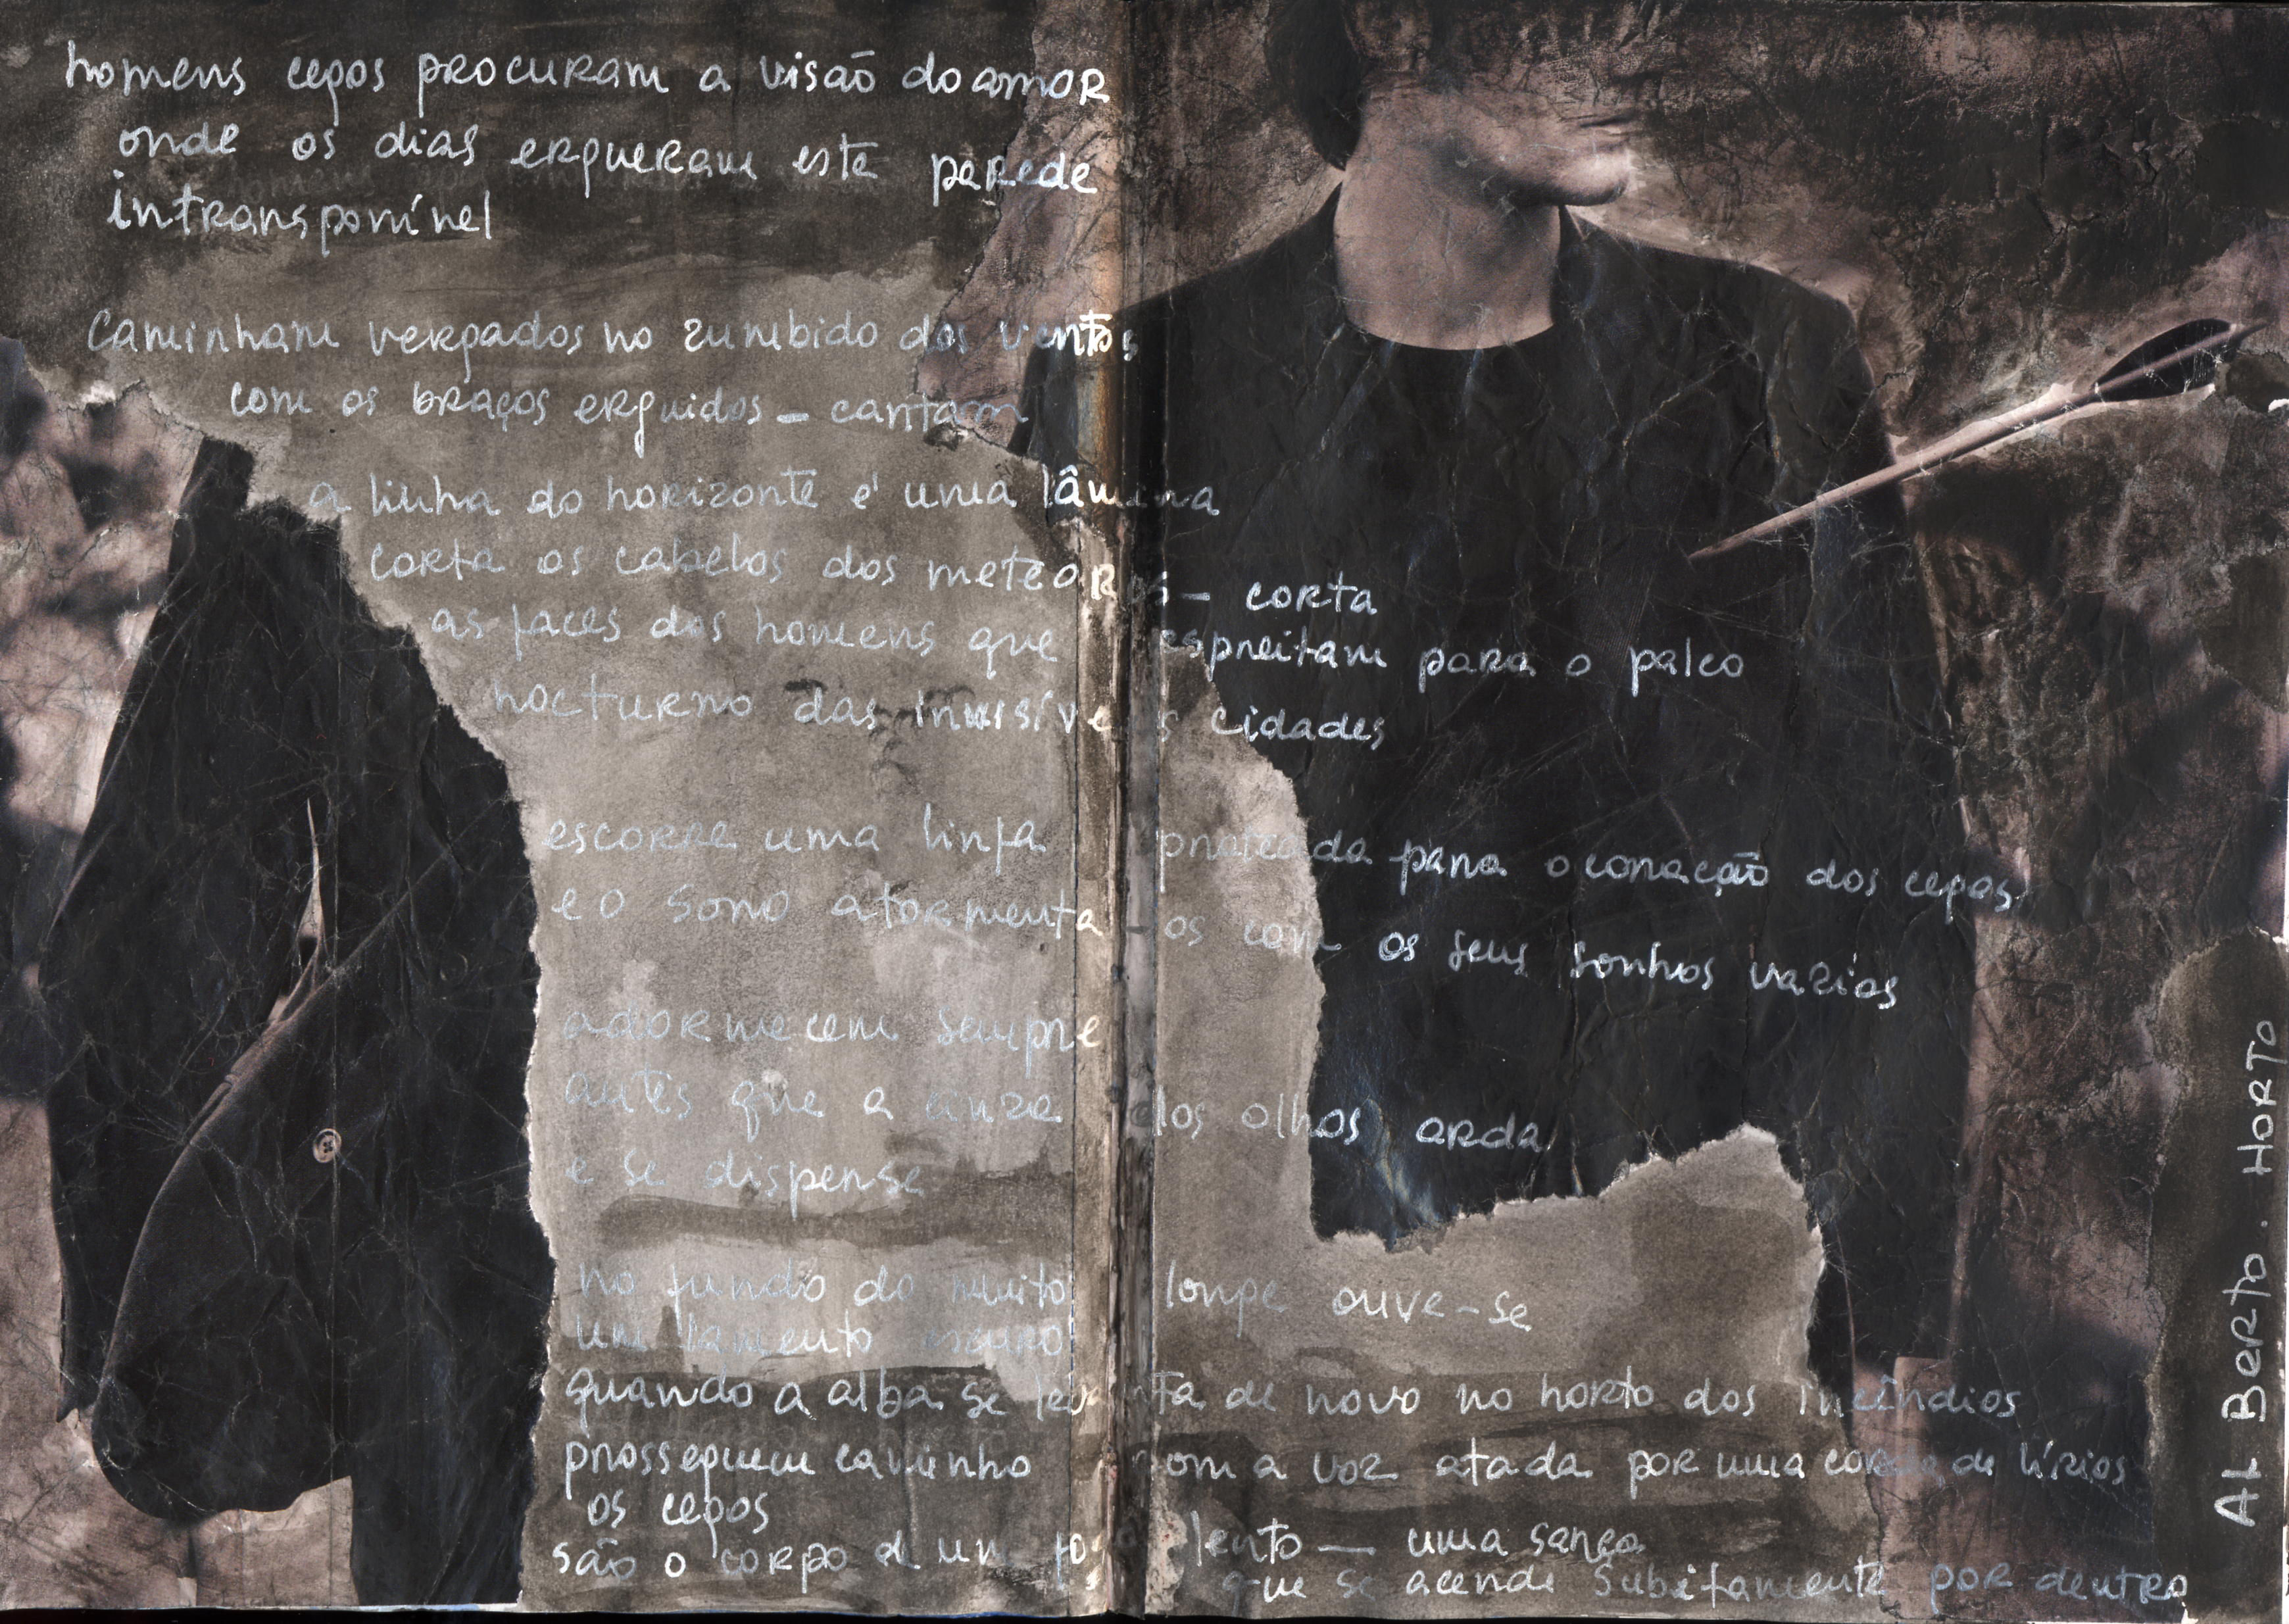 homens cegos procuram a visão do amor
onde os dias ergueram esta parede
intransponível
caminham vergados no zumbido dos ventos
com os braços erguidos – cantam
a linha do horizonte é uma lâmina
corta os cabelos dos meteoros – corta
as faces dos homens que espreitam para o palco
nocturno das invisíveis cidades
escorre uma linfa prateada para o coração dos cegos
e o sono atormenta os com os seus sonhos vazios
adormecem sempre
antes que a cinza dos olhos arda
e se disperse
no fundo do muito longe ouve-se
um lamento escuro
quando a alba se levanta de novo no horto dos incêndios
prosseguem caminho com a voz atada por uma corda de lírios
os cegos
são o corpo de um fogo lento — uma sarça
que se acende subitamente por dentro
Al Berto . HORTO